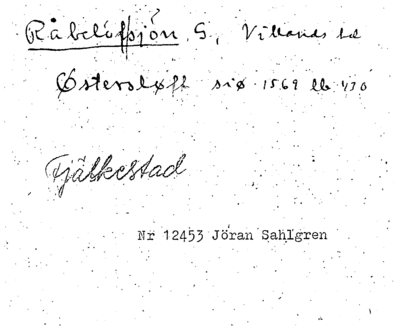 Råbelöfsjön S, Villands hd
Østersløft siø 1569 lb 430
Fjälkestad
Nr 12453 Jöran Sahlgren